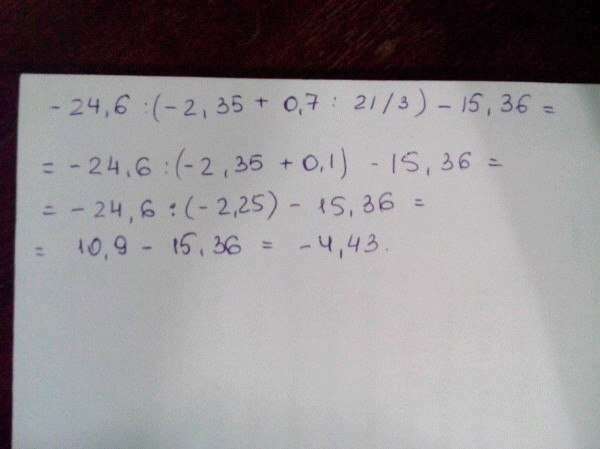 - 24,6 : (- 2, 35 + 0,7 : 21/3) - 15, 36 =
= - 24,6 : (- 2, 35 + 0,1) - 15, 36 =
= - 24,6 : (- 2,25) - 15,36 =
= 10,9 - 15,36 = - 4,43.